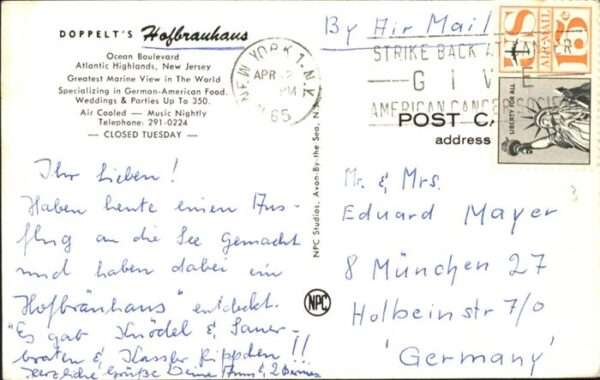 DOPPELT'S Hofbrauhaus
Ocean Boulevard
Atlantic Highlands, New Jersey
Greatest Marine View in The World
Specializing in German-American Food.
Weddings & Parties Up To 350.
Air Cooled — Music Nightly
Telephone: 291-0224
— CLOSED TUESDAY —
Ihr Lieben!
Haben heute einen Aus-
flug an die See gemacht
und haben dabei ein
Hofbräuhaus" entdeckt.
"Es gab Knödel & Sauer-
braten & Kassler Rippchen!!
Herzliche Grüße Deine
NPC Studios, Avon-By-the Sea, N.J.
NPC
NEW YORK 1, N.Y.
APR
PM
65
By Air Mail
STRIKE BACK AT CANCER
GIVE
AMERICAN CANCER SOCIETY
US AIR MAIL 15¢
LIBERTY FOR ALL
POST CA
address
Mr. & Mrs.
Eduard Mayer
8 München 27
Holbeinstr 7/0
'Germany'